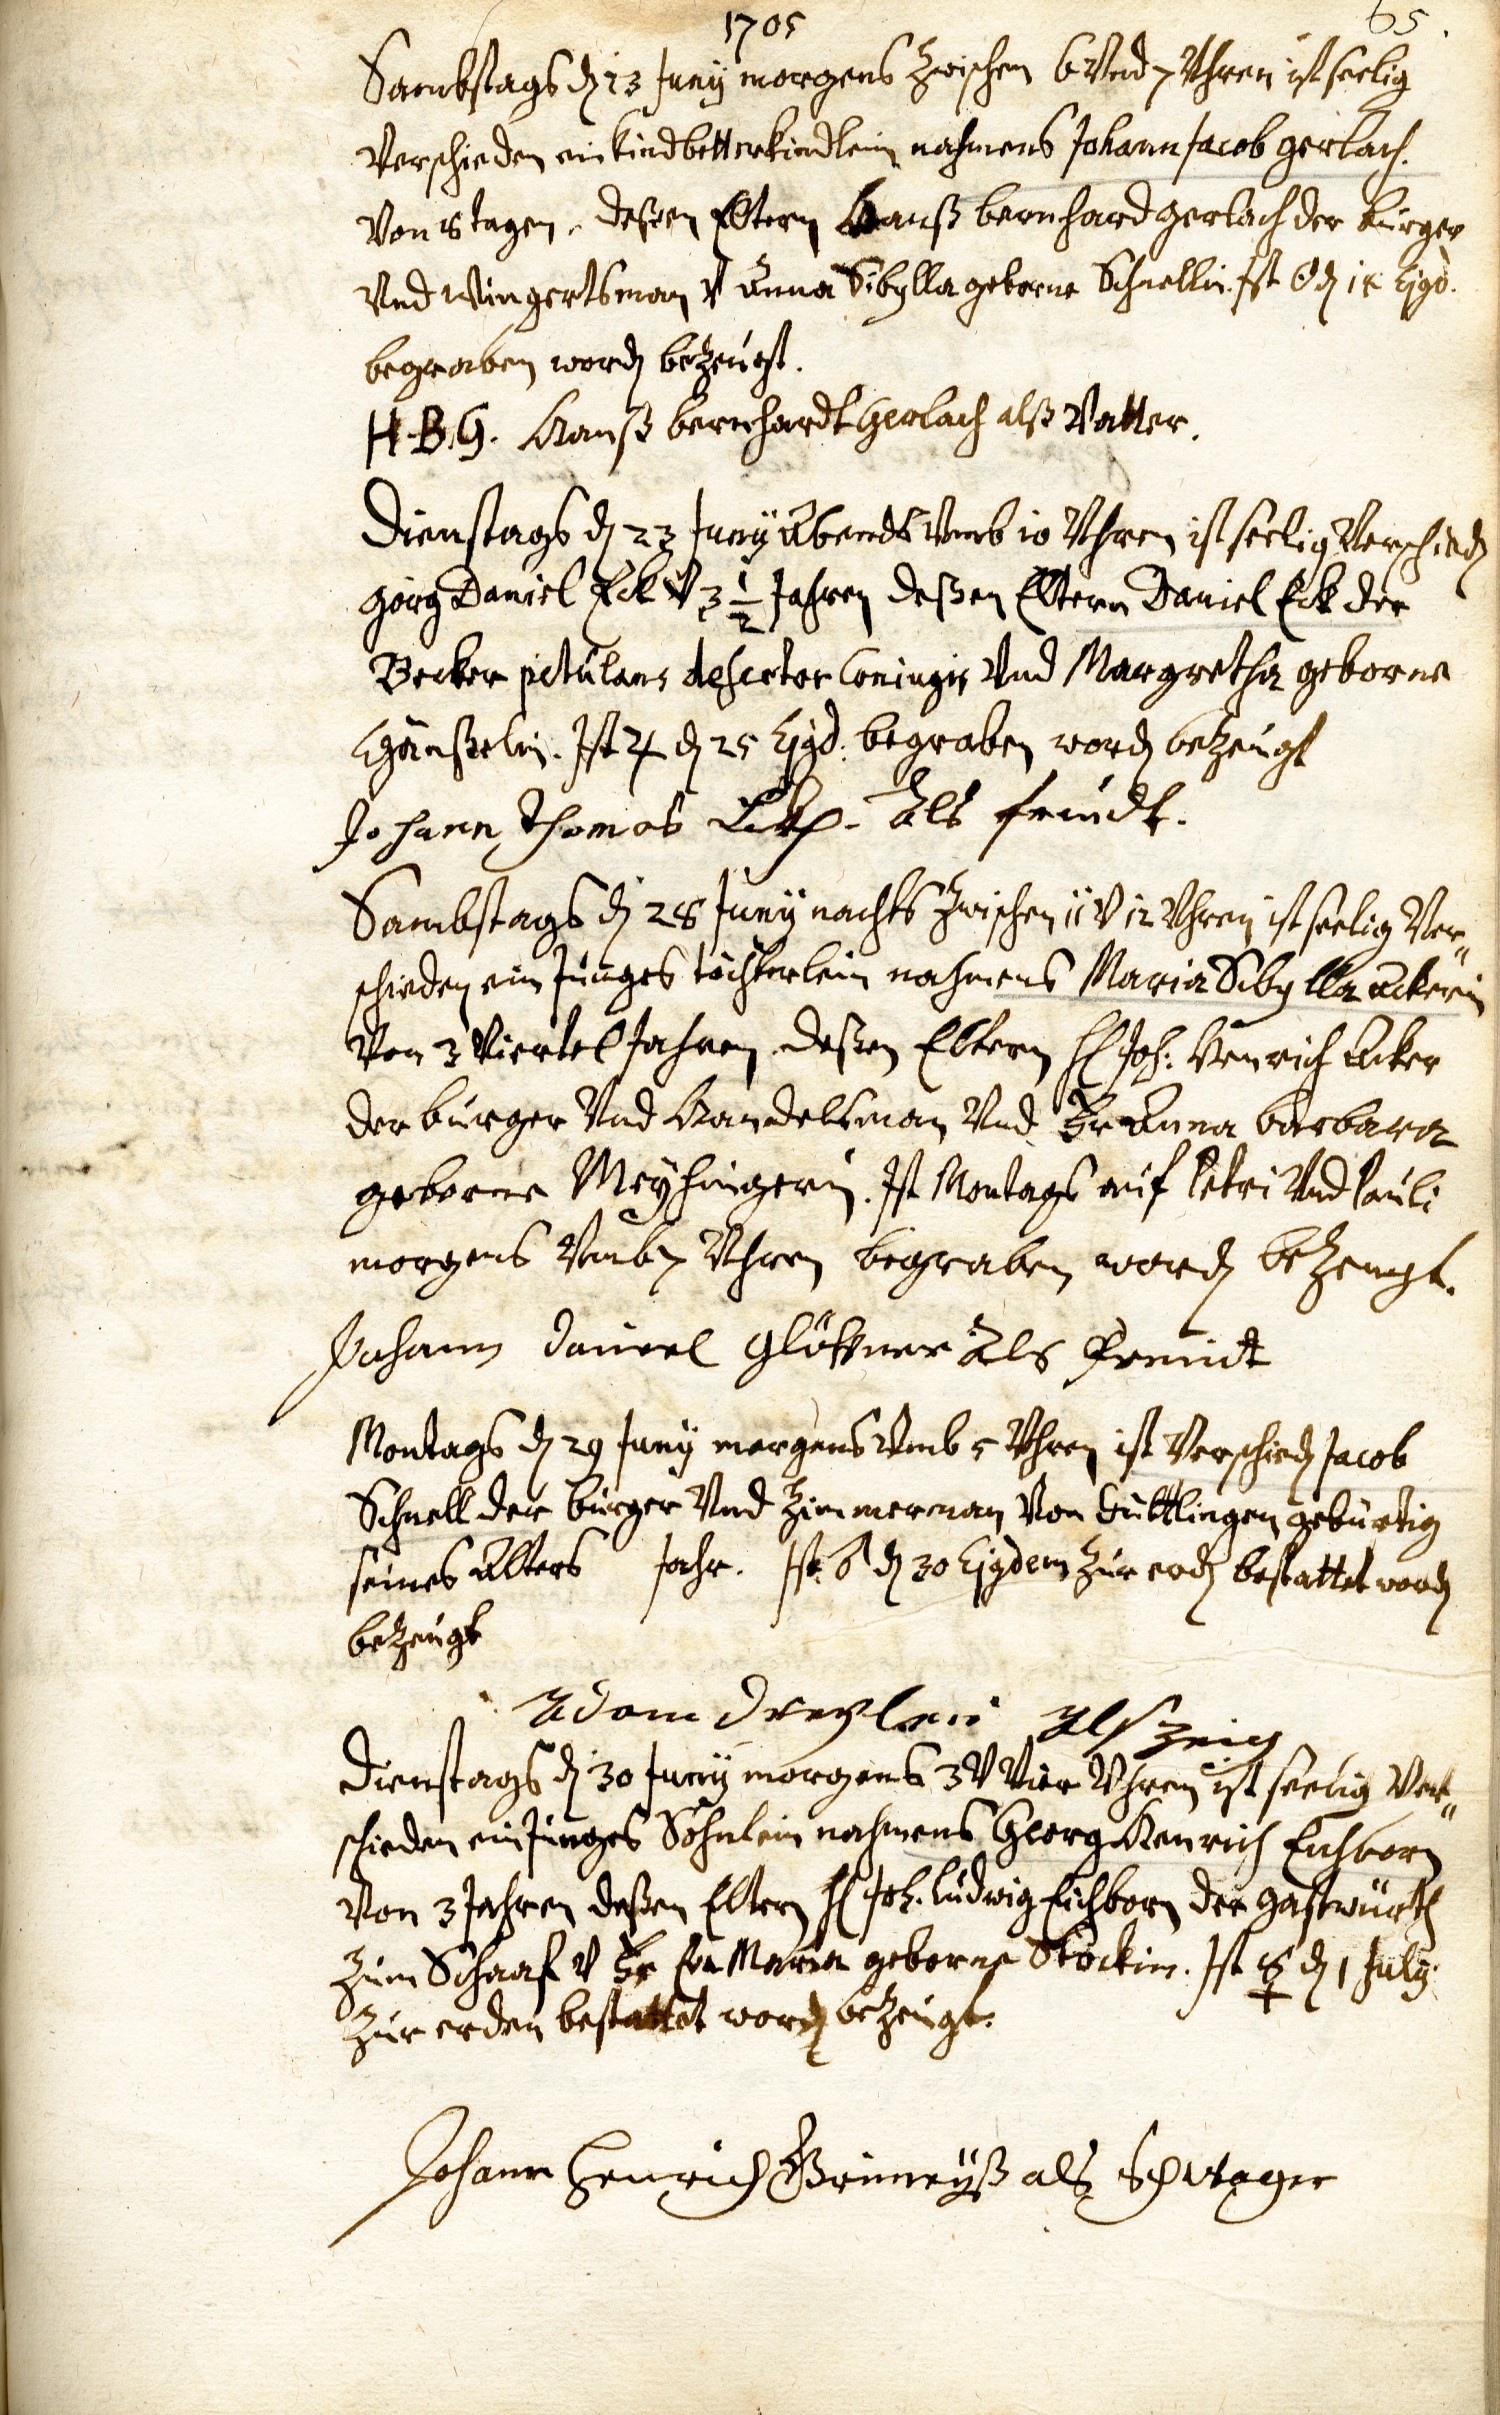 1705
65.
Sambstags d. 13 Juny morgens zwischen 6 Vnd 7 Vhren ist seelig
Verschieden ein Kindbetterkindlein nahmens Johann Jacob Gerlach.
Von 18 tagen. deßen Eltern Hanß bernhard Gerlach der bürger
Vnd Wingertsman V Anna Sibylla geborne Schnellin. Ist ☉ d. 14 Ejgd.
begraben word. bezeugt.
H. B. G. Hanß bernhardt Gerlach alß Vatter.
Dienstags d. 23 Juny Abends Vmb 10 Vhren ist seelig Verschied.
Görg Daniel Eck V 3 1/2 Jahren deßen Eltern Daniel Eck der
Becker petulans desertor Coniugis Vnd Margretha geborne
Gänßelin. Ist ♃ d. 25 Ejgd. begraben word. bezeugt
Johann Thomas Als freindt.
Sambstags d. 28 Juny nachts zwischen 11 V 12 Vhren ist seelig Ver„
schieden ein Junges töchterlein nahmens Maria Sibylla Ackerin
Von 3 Viertel Jahren deßen Eltern H Joh. Henrich Acker
der bürger Vnd Handelsman Vnd Fr Anna barbara
geborne Meyhingerin. Ist Montags auf Petri Vnd Pauli
morgens Vmb 7 Vhren begraben word. bezeugt.
Johann Daniel Glöckner Als Freindt
Montags d. 29 Juny morgens Vmb 5 Vhren ist Verschied. Jacob
Schnell der bürger Vnd Zimmerman Von Tuttlingen gebürtig
seines Alters Jahr. Ist ♂ d. 30 Ejgdem zur erd. bestattet word.
bezeugt
Adam Als Zeig
Dienstags d. 30 Juny morgens 3 V Vier Vhren ist seelig Ver„
schieden ein Junges Söhnlein nahmens Georg Henrich Eichborn
Von 3 Jahren deßen Eltern H Joh. Ludwig Eichborn der gastwürth
Zum Schaaf V Fr Eva Maria geborne Stöckin. Ist ☿ d. 1 July
Zur erden bestattet word. bezeugt.
Johann Henrich als Schwager